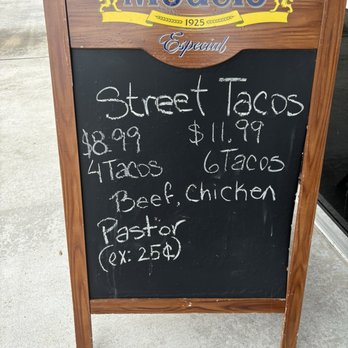 Modelo
1925
Especial
Street Tacos
$8.99 $11.99
4 Tacos 6 Tacos
Beef, Chicken
Pastor
(ex: 25¢)